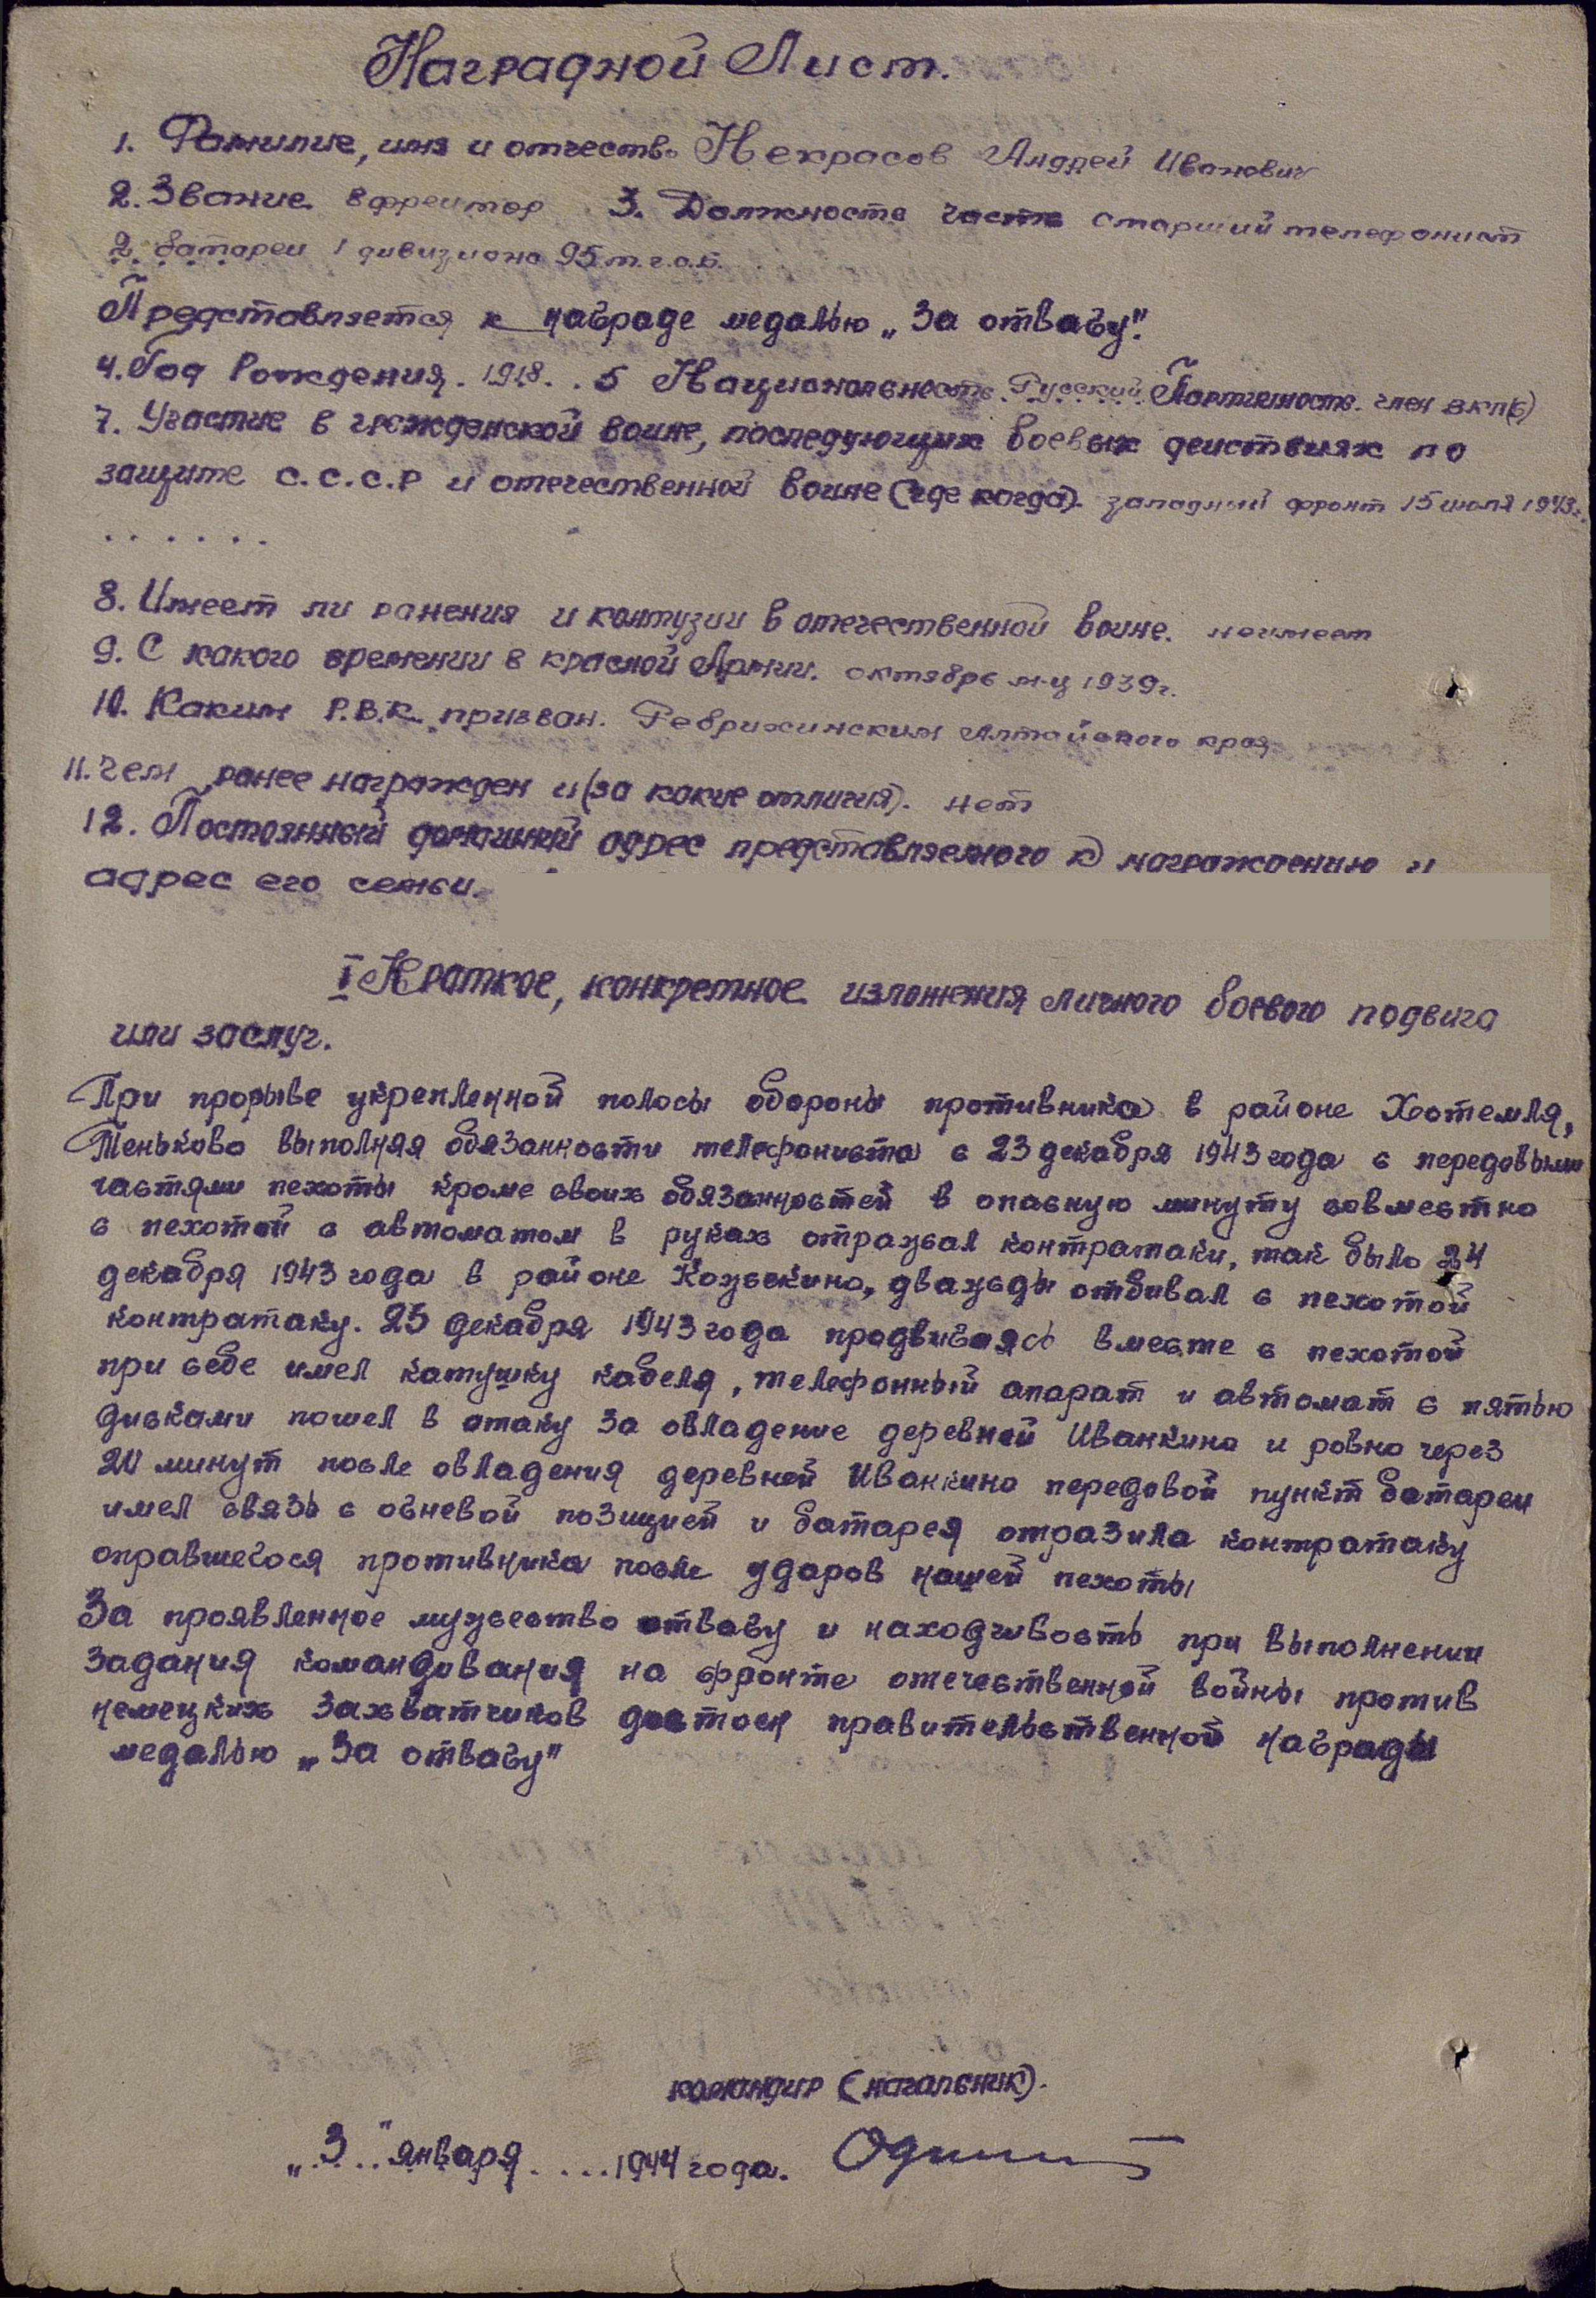 Наградной Лист.
1. Фамилие, имя и отчество Некрасов Андрей Иванович
2. Звание ефрейтор 3. Должность часть старший телефонист
2 батареи 1 дивизиона 95 т.г.а.б.
Представляется к награде медалью „За отвагу".
4. Год Рождения. 1918. . 5 Национальность. Русский. Партийность. член ВКП(б)
7. Участие в гражданской воине, последующих боевых деиствиях по
защите С.С.С.Р и отечественной воине (где когда). западный фронт 15 июля 1943г.
. . . . . .
8. Имеет ли ранения и контузии в отечественной воине. неимеет
9. С какого времении в красной Армии. октябрь м-ц 1939г.
10. Каким Р.В.К. призван. Ребрихинским Алтайского края
11. Чем ранее награжден и (за какие отличия). нет
12. Постоянный домашний адрес представляемого к награждению и
адрес его семьи.
I Краткое, конкретное изложения личного боевого подвига
или заслуг.
При прорыве укрепленной полосы обороны противника в районе Хотемля,
Меньково выполняя обязанности телефониста с 23 декабря 1943 года с передовыми
частями пехоты кроме своих обязанностей в опасную минуту совместно
с пехотой с автоматом в руках отражал контратаки, так было 24
декабря 1943 года в районе Кожекино, дважды отбивал с пехотой
контратаку. 25 декабря 1943 года продвигаясь вместе с пехотой
при себе имел катушку кабеля, телефонный апарат и автомат с пятью
дисками пошел в атаку за овладение деревней Иванкино и ровно через
20 минут после овладения деревней Иванкино передовой пункт батареи
имел связь с огневой позицией и батарея отразила контратаку
оправшегося противника после ударов нашей пехоты
За проявленное мужество отвагу и находчивость при выполнении
задания командивания на фронте отечественной войны против
немецких захватчиков достоен правительственной награды
медалью „За отвагу"
командир (начальник).
„. 3 . ." января . . . . 1944 года.